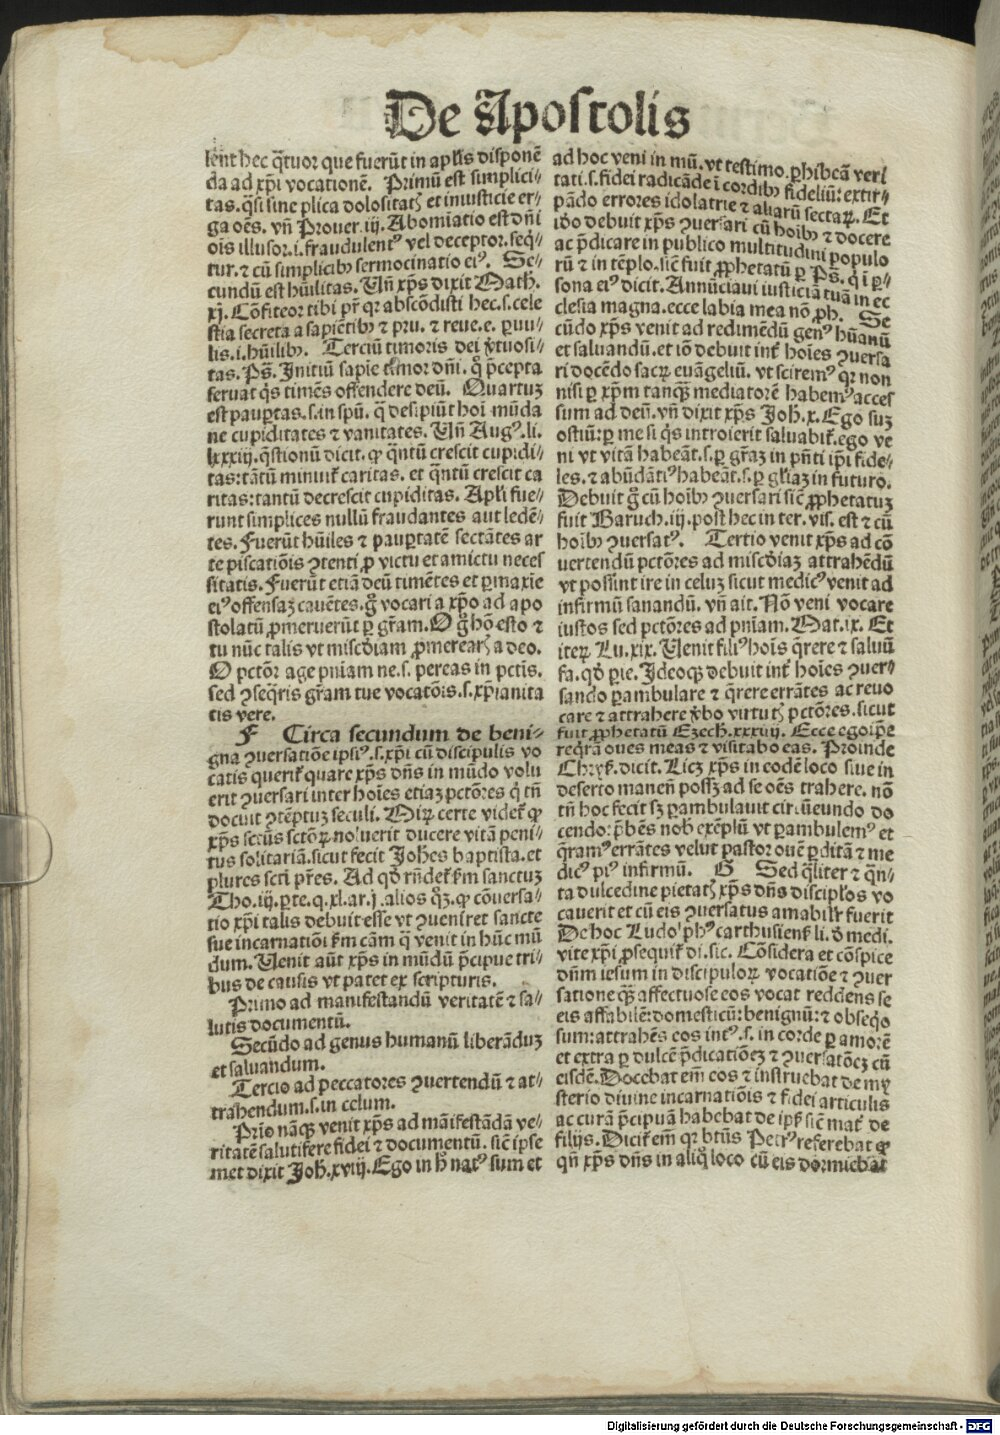 De Apostolis
lent hec q̄tuor que fuerūt in aplīs disponē
da ad xp̄i vocationē. Primū est simplici⸗
tas. q̄si sine plica dolositatꝭ et iniusticie er⸗
ga oēs. vn̄ Prouer. iij. Abomiatio est dn̄i
ois illusor. i. fraudulentꝰ vel deceptor. seq̄⸗
tur. ⁊ cū simplicibꝰ sermocinatio eiꝰ. Se⸗
cundū est hūilitas. Vn̄ xp̄s dixit Math.
xj. Cōfiteor tibi pr̄ qꝛ abscōdisti hec. s. cele
stia secreta a sapiētibꝰ ⁊ pru. ⁊ reue. e. ꝑuu⸗
lis. i. hūilibꝰ. Terciū timoris dei v̓tuosi⸗
tas. Ps̄. Initiū sapie timor dn̄i. q̓ p̄cepta
seruat q̓s timēs offendere deū. Quartuꝫ
est pauꝑtas. s. in spū. q̄ desipiūt hoi mūda
ne cupiditates ⁊ vanitates. Vn̄ Augꝰ. li.
lxxxiij. q̄stionū dicit. ꝙ q̄ntū crescit cupidi⸗
tas: tātū minuit̄ caritas. et q̄ntū crescit ca
ritas: tantū decrescit cupiditas. Apl̄i fue⸗
runt simplices nullū fraudantes aut ledē⸗
tes. Fuerūt hūiles ⁊ pauꝑtatē sectātes ar
te piscatiōis ꝯtenti ꝓ victu et amictu neces
sitatis. Fuerūt etiā deū timētes et ꝑ maxīe
eiꝰ offensaꝫ cauētes. g̊ vocari a xp̄o ad apo
stolatū ꝓmeruerūt ꝑ gr̄am. O g̊ hō esto ⁊
tu nūc talis vt misc̓diam ꝓmerearꝭ a deo.
O pctōr age pniam ne. s. pereas in pctīs.
sed ꝯseq̄ris gr̄am tue vocatōis. s. xp̄ianita
tis vere.
F Circa secundum de beni⸗
gna ꝯuersatiōe ipsiꝰ. s. xp̄i cū discipulis vo
catis querit̄ quare xp̄s dn̄s in mūdo volu
erit ꝯuersari inter hoīes etiaꝫ pctōres q̓ tn̄
docuit ꝯtēptuꝫ seculi. Miꝝ certe videt̄ ꝙ
xp̄s secūs sctōꝝ noluerit ducere vitā peni⸗
tus solitariā. sicut fecit Joh̄es baptista. et
plures scti pr̄es. Ad qd̓ rn̄det̄ ẜm sanctuꝫ
Tho. iij. ꝑte. q. xl. ar. j. alios qꝫ. ꝙ cōuersa⸗
tio xp̄i talis debuit esse vt ꝯueniret sancte
sue incarnatiōi ẜm cām q̄ venit in hūc mū
dum. Venit aūt xp̄s in mūdū p̄cipue tri⸗
bus de causis vt patet ex scripturis.
Primo ad manifestandū veritatē ⁊ sa⸗
lutis documentū.
Secūdo ad genus humanū liberāduꝫ
et saluandum.
Tercio ad peccatores ꝯuertendū ⁊ at⸗
trahendum. s. in celum.
Prīo nāqꝫ venit xp̄s ad māifestādā ve⸗
ritatē salutifere fidei ⁊ documentū. sic̄ ipse
met dixit Joh̄. xviij. Ego in h̓ natꝰ sum et
ad hoc veni in mū. vt testimo. ꝑhibeā veri
tati. s. fidei radicāde ī cordibꝰ fideliū: extir⸗
pādo errores idolatrie ⁊ aliarū sectaꝝ. Et
iōo debuit xp̄s ꝯuersari cū hoībꝰ ⁊ docere
ac p̄dicare in publico multitudini populo
rū ⁊ in tēplo. sic̄ fuit ꝓphetatū ꝑ Ps̄. q̓ i ꝑ⸗
sona eiꝰ dicit. Annūciaui iusticiā tuā in ec
clesia magna. ecce labia mea nō ꝓh. Se
cūdo xp̄s venit ad redimēdū genꝰ hūanū
et saluandū. et iō debuit int̄ hoīes ꝯuersa
ri docēdo sacꝝ euāgeliū. vt sciremꝰ qꝛ non
nisi ꝑ xp̄m tanqꝫ mediatorē habemꝰ acces
sum ad deū. vn̄ dixit xp̄s Joh̄. x. Ego suꝫ
ostiū: ꝑ me si q̓s introierit saluabit̄. ego ve
ni vt vitā habeāt. s. ꝑ gr̄aꝫ in pn̄ti ip̄i fide⸗
les. ⁊ abūdātiꝰ habeāt. s. ꝑ gl̓iaꝫ in futuro.
Debuit g̊ cū hoībꝰ ꝯuersari sic̄ ꝓphetatuꝫ
fuit Baruch. iij. post hec in ter. vis. est ⁊ cū
hoībꝰ ꝯuersatꝰ. Tertio venit xp̄s ad cō
uertendū pctōres ad misc̓diaꝫ attrahēdū
vt possint ire in celuꝫ sicut medicꝰ venit ad
infirmū sanandū. vn̄ ait. Nō veni vocare
iustos sed pctōres ad pn̄iam. Mat. ix. Et
iteꝝ Lu. xix. Venit filiꝰ hoīs q̄rere ⁊ saluū
fa. qd̓ ꝑie. Ideoqꝫ debuit int̄ hoīes ꝯuer⸗
sando ꝑambulare ⁊ q̄rere errātes ac reuo
care ⁊ attrahere v̓bo virtutꝭ pctōres. sicut
fuit ꝓphetatū Ezech̄. xxxiiij. Ecce ego ip̄e
req̄rā oues meas ⁊ visitabo eas. Proinde
Chryẜ. dicit. Licꝫ xp̄s in eodē loco siue in
deserto manen̄ possꝫ ad se oēs trahere. nō
tn̄ hoc fecit sꝫ ꝑambulauit circūeundo do
cendo: p̄bēs nob̄ exēplū vt ꝑambulemꝰ et
q̄ramꝰ errātes velut pastor ouē ꝑditā ⁊ me
dicꝰ piꝰ infirmū. G Sed q̄liter ⁊ q̄n⸗
ta dulcedine pietatꝭ xp̄s dn̄s discipl̓os vo
cauerit et cū eis ꝯuersatus amabilit̄ fuerit
De hoc Ludolphꝰ carthusienẜ li. d̓ medi.
vite xp̄i ꝓsequit̄ di. sic. Cōsidera et cōspice
dn̄m iesum in discipuloꝝ vocatiōe ⁊ ꝯuer
satione qꝫ affectuose eos vocat reddens se
eis affabilē: domesticū: benignū: ⁊ obseq̓o
sum: attrahēs eos intꝰ. s. in corde ꝑ amorē
et extra ꝑ dulcē p̄dicatiōeꝫ ⁊ ꝯuersatōeꝫ cū
eisdē. Docebat em̄ eos ⁊ instruebat de my
sterio diuine incarnatiōis ⁊ fidei articulis
ac curā p̄cipuā habebat de ipẜ sic̄ mat̄ de
filijs. Dicit̄ em̄ qꝛ btūs Petrꝰ referebat ꝙ
qn̄ xp̄s dn̄s in aliq̊ loco cū eis dormiebat
Digitalisierung gefördert durch die Deutsche Forschungsgemeinschaft - DFG